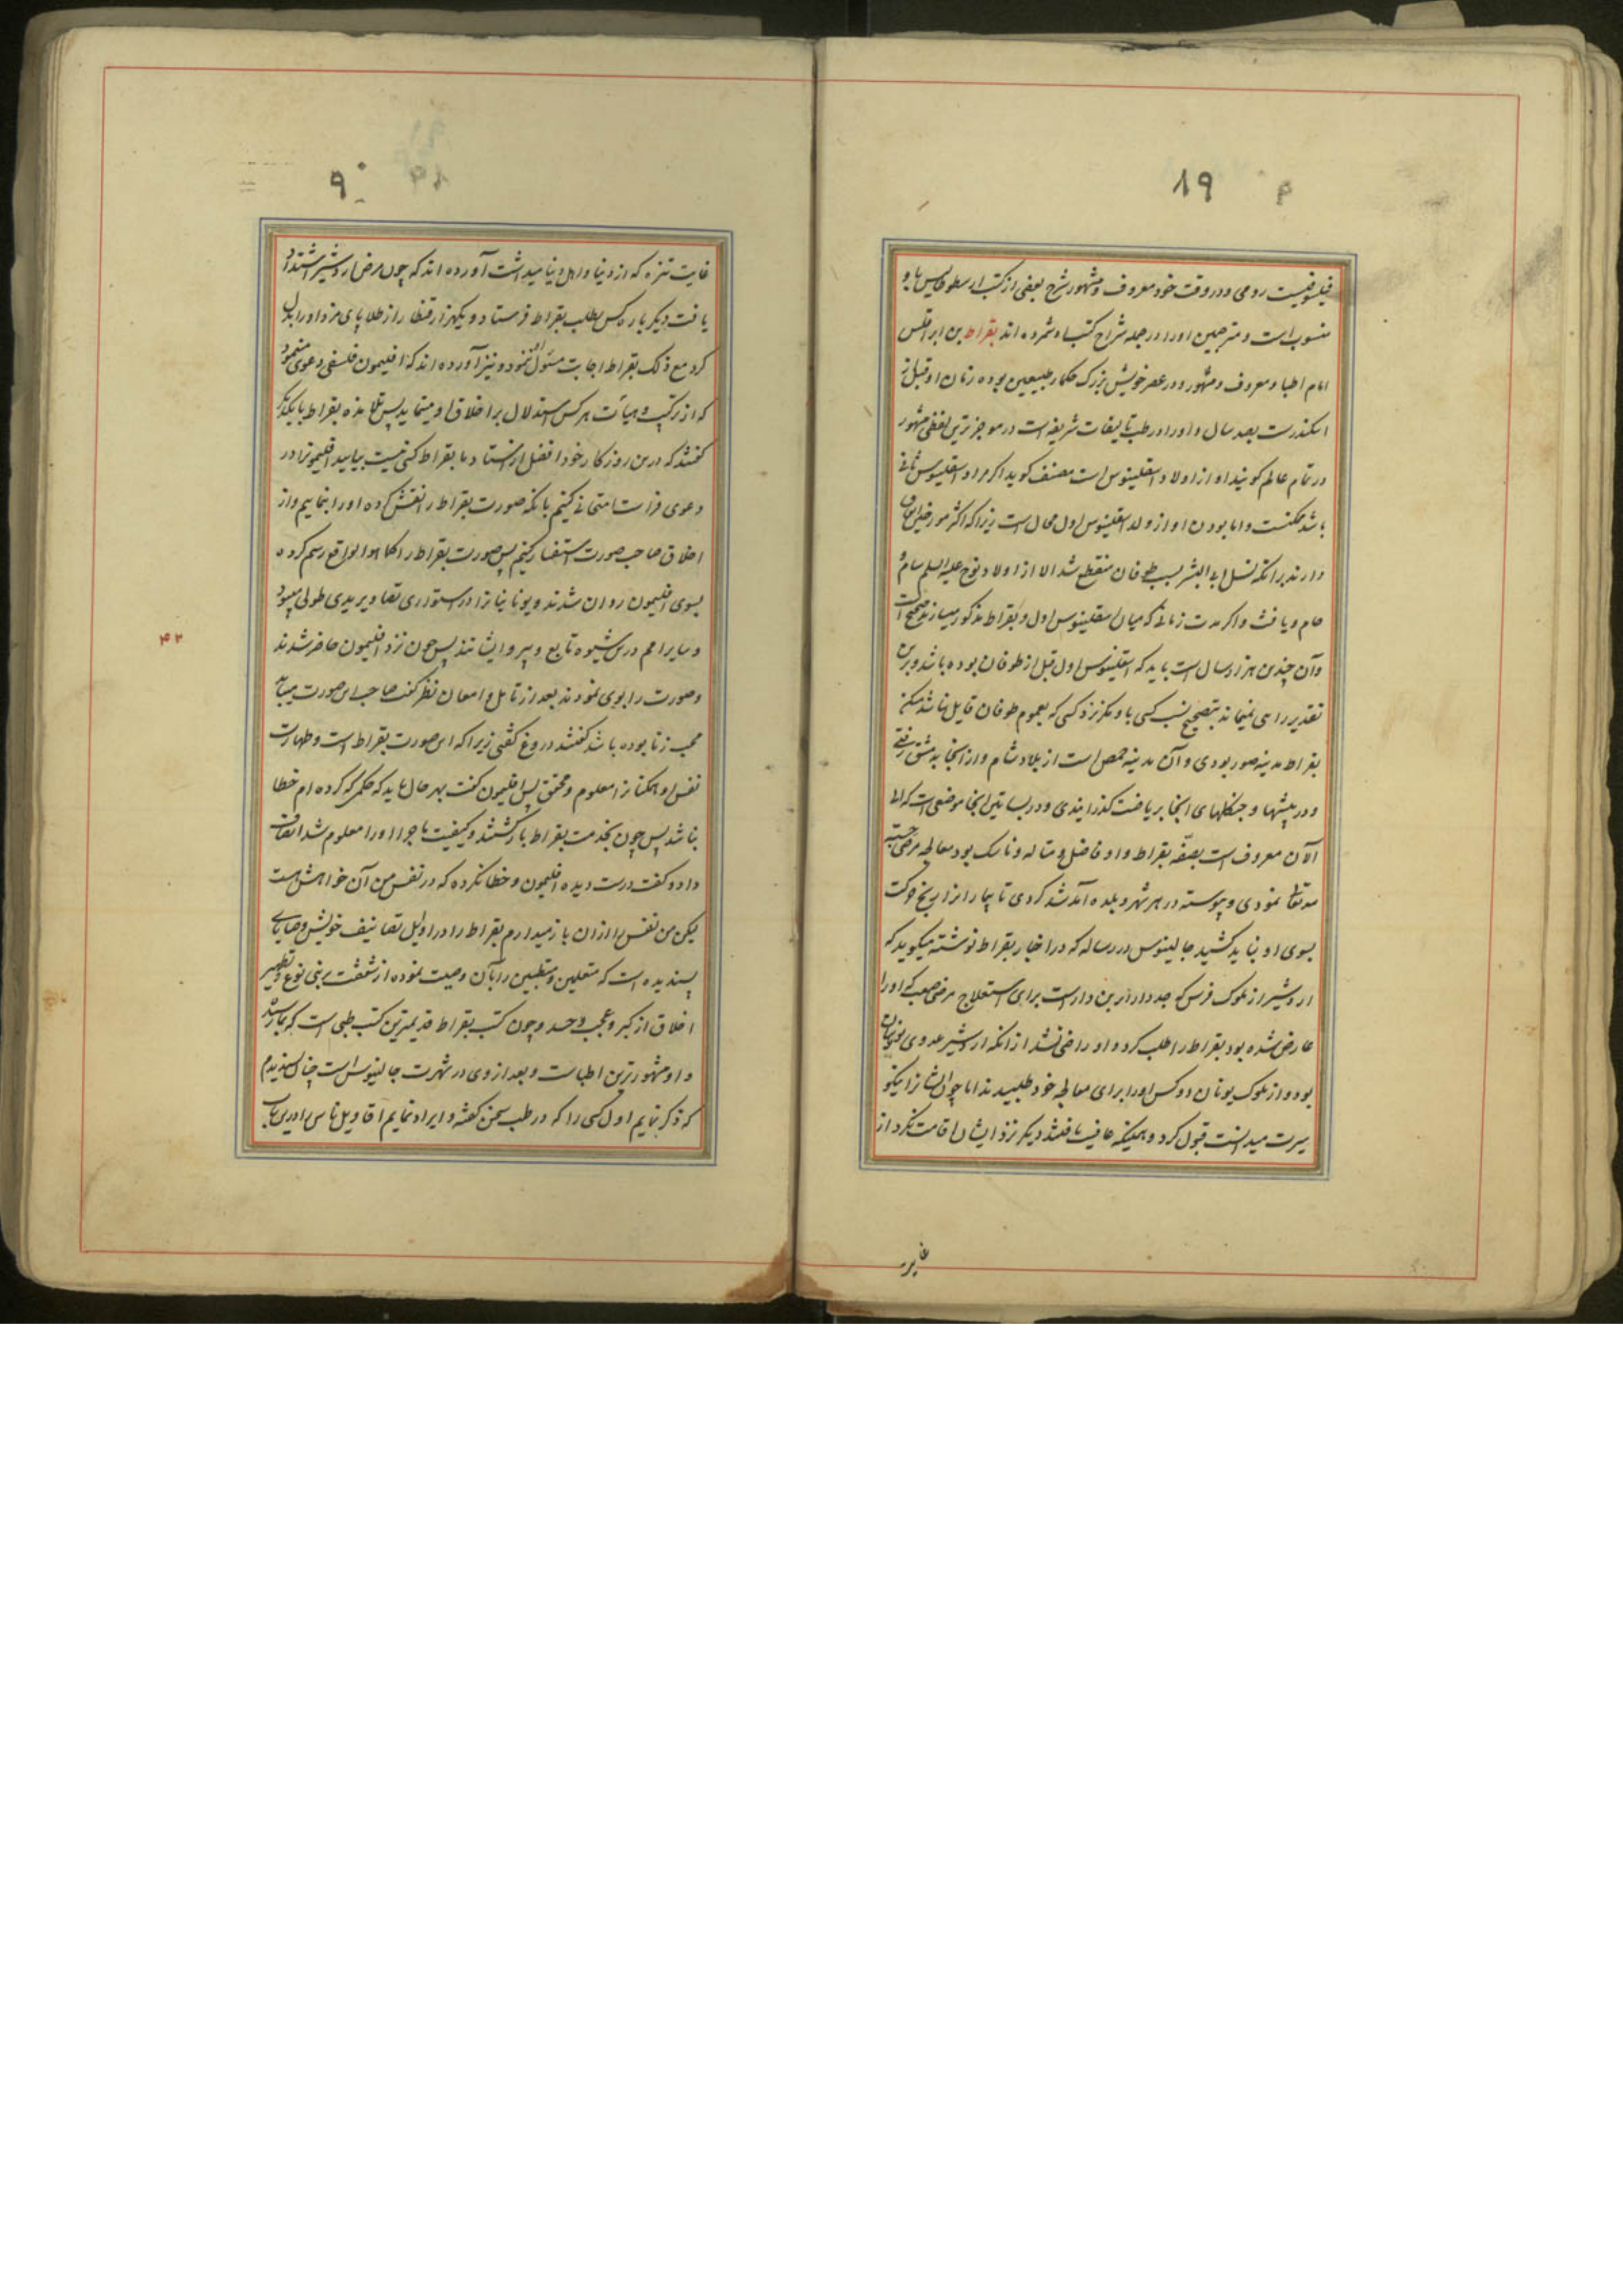 ۸۹
فیلسوفیست رومی و در وقت خود معروف و مشهور شرح بعضی از کتب ارسطوطالیس باو
منسوب است و مترجمین او را در جمله شراح کتب او شمرده اند بقراط بن ابراقلس
امام اطبا و معروف و مشهور و در عصر خویش بزرک حکمار طبیعیین بوده زمان او قبل از
اسکندرست بصد سال و او را در طب تالیفات شریفه است در موجز ترین لفظی مشهور
در تمام عالم کویند او از اولاد اسقلینوس است مصنف کوید اکر مراد اسقلینوس ثانی
باشد ممکنست و اما بودن او از ولد اسقلینوس اول محال است زیرا که اکثر مورخین اتفاق
دارند برانکه نسل ابی البشر بسبب طوفان منقطع شد الا از اولاد نوح علیه السلم سام
حام و یافث و اکر مدت زمانی که میان اسقلینوس اول و بقراط مذکور میسازند صحیح است
و آن چندین هزار سال است باید که اسقلینوس اول قبل از طوفان بوده باشد و برین
تقدیر راهی نمیماند بتصحیح نسب کسی باو مکر نزد کسی که بعموم طوفان قایل نباشد مسکن
بقراط مدینه صور بودی و آن مدینه حمص است از بلاد شام و از انجا بدمشق رفتی
و در بیشها و جنکلهای انجا بریاضت کذرانیدی و در بساتین انجا موضعی است که الی
الآن معروف است بصفّه بقراط و او فاضل و متاله و ناسک بود معالجه مرضی حسبة
لله تعالی نمودی و پیوسته در هر شهر و بلده آمد شد کردی تا بیمارانرا رنج حرکت
بسوی او نباید کشید جالینوس در رساله که در اخبار بقراط نوشته میکوید که
اردشیر از ملوک فرس که جد دارا بن دار است برای استعلاج مرضی صعب که او را
عارض شده بود بقراط را طلب کرد و او راضی نشد از انکه اردشیر عدوی یونانیان
بود و از ملوک یونان دو کس او را برای معالجه خود طلبیدند اما چون ایشانرا نیکو
سیرت میدانست قبول کرد و همینکه عافیت یافتند دیکر نزد ایشان اقامت نکرد از
غایت
۹۰
غایت تنزه که از دنیا و اهل دنیا میداشت آورده اند که چون مرض اردشیر اشتداد
یافت دیکر باره کس بطلب بقراط فرستاد و یکهزار قنطار از طلا پای مزد او را بذل
کرد مع ذلک بقراط اجابت مسئول او ننمود و نیز آورده اند که افلیمون فلسفی دعوی مینمود
که از ترکیب و هیأت هر کس استدلال بر اخلاق او مینماید پس تلامذه بقراط با یکدیکر
کفتند که درین روزکار خود افضل از استاد ما بقراط کسی نیست بیایید افلیمونرا در
دعوی فراست امتحانی کنیم بانکه صورت بقراط را نقش کرده او را بنماییم و از
اخلاق صاحب صورت استفسار کنیم پس صورت بقراط را کما هو الواقع رسم کرده
بسوی افلیمون روان شدند و یونانیانرا در استوری تصاویر یدی طولی میبود
و سایر امم درین شیوه تابع و پیرو ایشانند پس چون نزد افلیمون حاضر شدند
و صورت را بوی نمودند بعد از تامل و امعان نظر کفت صاحب این صورت میباید
محب زنا بوده باشد کفتند دروغ کفتی زیرا که این صورت بقراط است و طهارت
نفس او همکنانرا معلوم و محقق پس افلیمون کفت بهر حال باید که حکمی که کرده ام خطا
نباشد پس چون بخدمت بقراط بازکشتند و کیفیت ماجرا او را معلوم شد انصاف
داد و کفت درست دیده افلیمون و خطا نکرده که در نفس من آن خواهش هست
لیکن من نفس را ازان باز میدارم بقراط را در اوایل تصانیف خویش وصایای
پسندیده است که متعلمین و متطببین را بآن وصیت نموده از شفقت بر بنی نوع و تطهیر
اخلاق از کبر و عجب و حسد و چون کتب بقراط قدیمترین کتب طبی است که بما رسید
و او مشهورترین اطباست و بعد از وی در شهرت جالینوس است چنان پسندیدم
که ذکر نمایم اول کسی را که در طب سخن کفته و ایراد نمایم اقاویل ناس را درین باب
۴۲